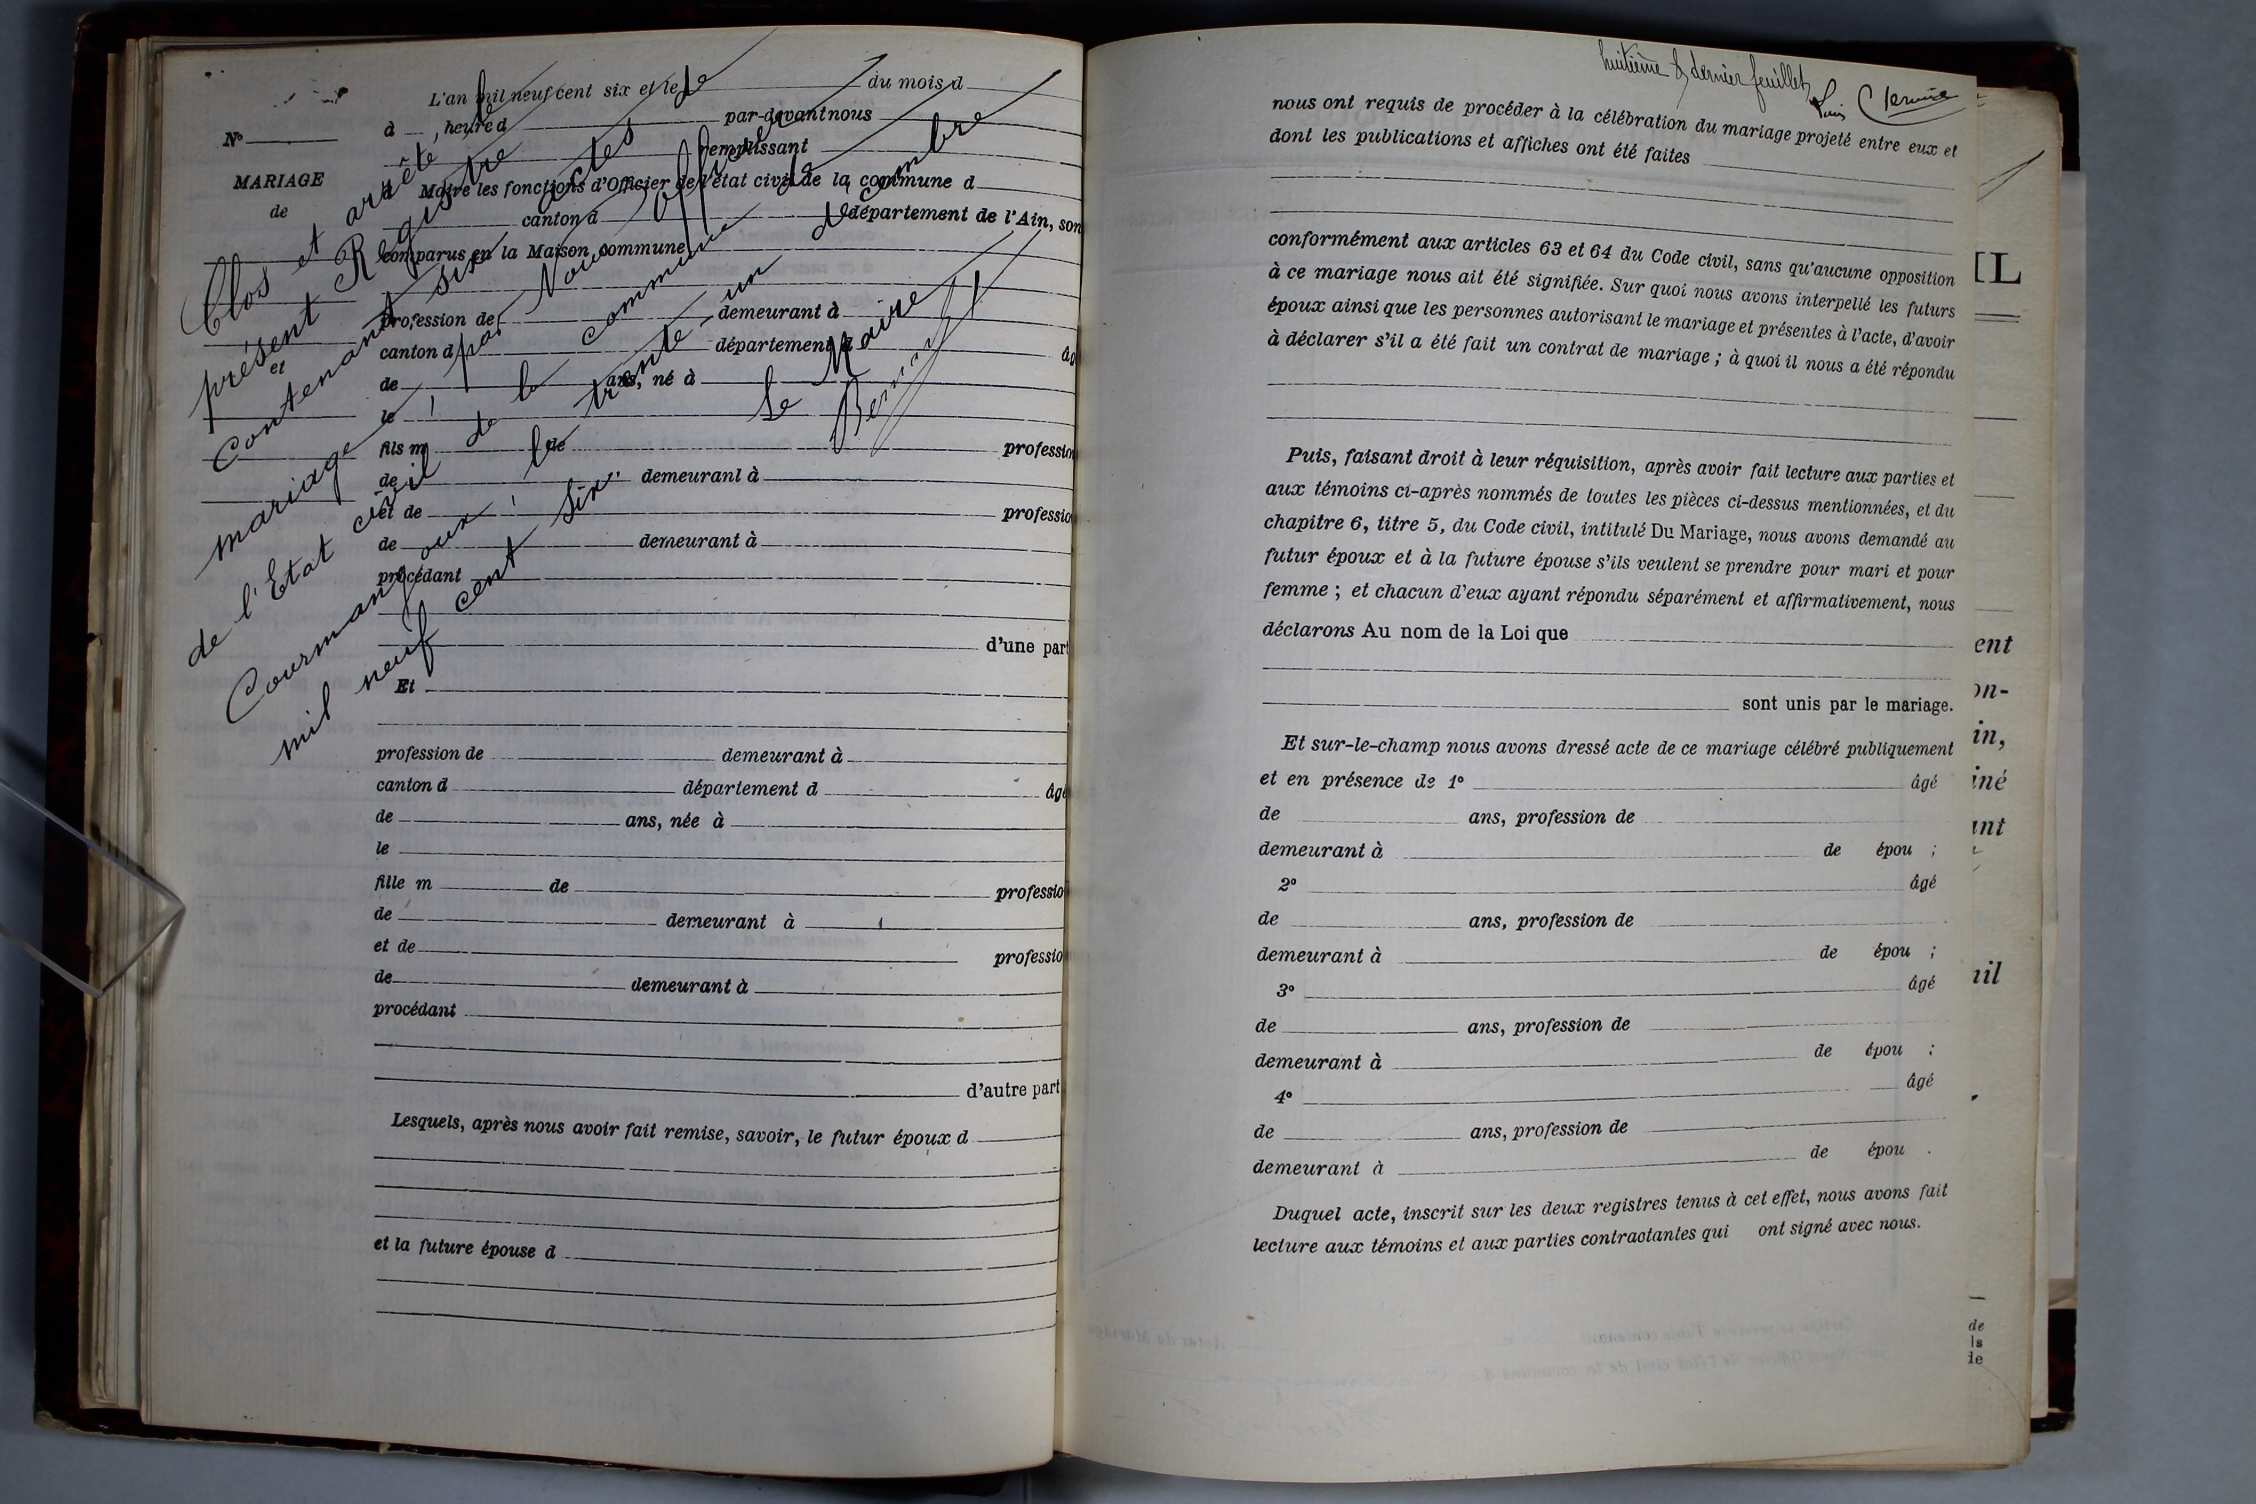 L'an mil neuf cent six et le du mois d
N° à , heure d par-devant nous
remplissant
MARIAGE
de
Maire les fonctions d'Officier de l'état civil de la commune d
canton d département de l'Ain, son
comparus en la Maison commune
profession de demeurant à
et
canton d département d âg
de ans, né à
le
fils m de professio
de demeurant à
et de professio
de demeurant à
procédant
d'une part
Et
profession de demeurant à
canton d département d âgé
de ans, née à
le
fille m de professio
de demeurant à
et de professio
de demeurant à
procédant
d'autre part
Lesquels, après nous avoir fait remise, savoir, le futur époux d
et la future épouse d
Clos et arrêté, le
présent Registre
Contenant six actes de
mariage, par Nous Officier
de l'Etat civil de la commune de
Courmangoux, le trente un décembre
mil neuf cent six.
Le Maire
huitième & dernier feuillet
nous ont requis de procéder à la célébration du mariage projeté entre eux et
dont les publications et affiches ont été faites
conformément aux articles 63 et 64 du Code civil, sans qu'aucune opposition
à ce mariage nous ait été signifiée. Sur quoi nous avons interpellé les futurs
époux ainsi que les personnes autorisant le mariage et présentes à l'acte, d'avoir
à déclarer s'il a été fait un contrat de mariage ; à quoi il nous a été répondu
Puis, faisant droit à leur réquisition, après avoir fait lecture aux parties et
aux témoins ci-après nommés de toutes les pièces ci-dessus mentionnées, et du
chapitre 6, titre 5, du Code civil, intitulé Du Mariage, nous avons demandé au
futur époux et à la future épouse s'ils veulent se prendre pour mari et pour
femme ; et chacun d'eux ayant répondu séparément et affirmativement, nous
déclarons Au nom de la Loi que
sont unis par le mariage.
Et sur-le-champ nous avons dressé acte de ce mariage célébré publiquement
et en présence de 1° âgé
de ans, profession de
demeurant à de épou ;
2° âgé
de ans, profession de
demeurant à de épou ;
3° âgé
de ans, profession de
demeurant à de épou ;
4° âgé
de ans, profession de
demeurant à de épou .
Duquel acte, inscrit sur les deux registres tenus à cet effet, nous avons fait
lecture aux témoins et aux parties contractantes qui ont signé avec nous.
IL
ent
on-
in,
iné
ant
uil
de
ls
de